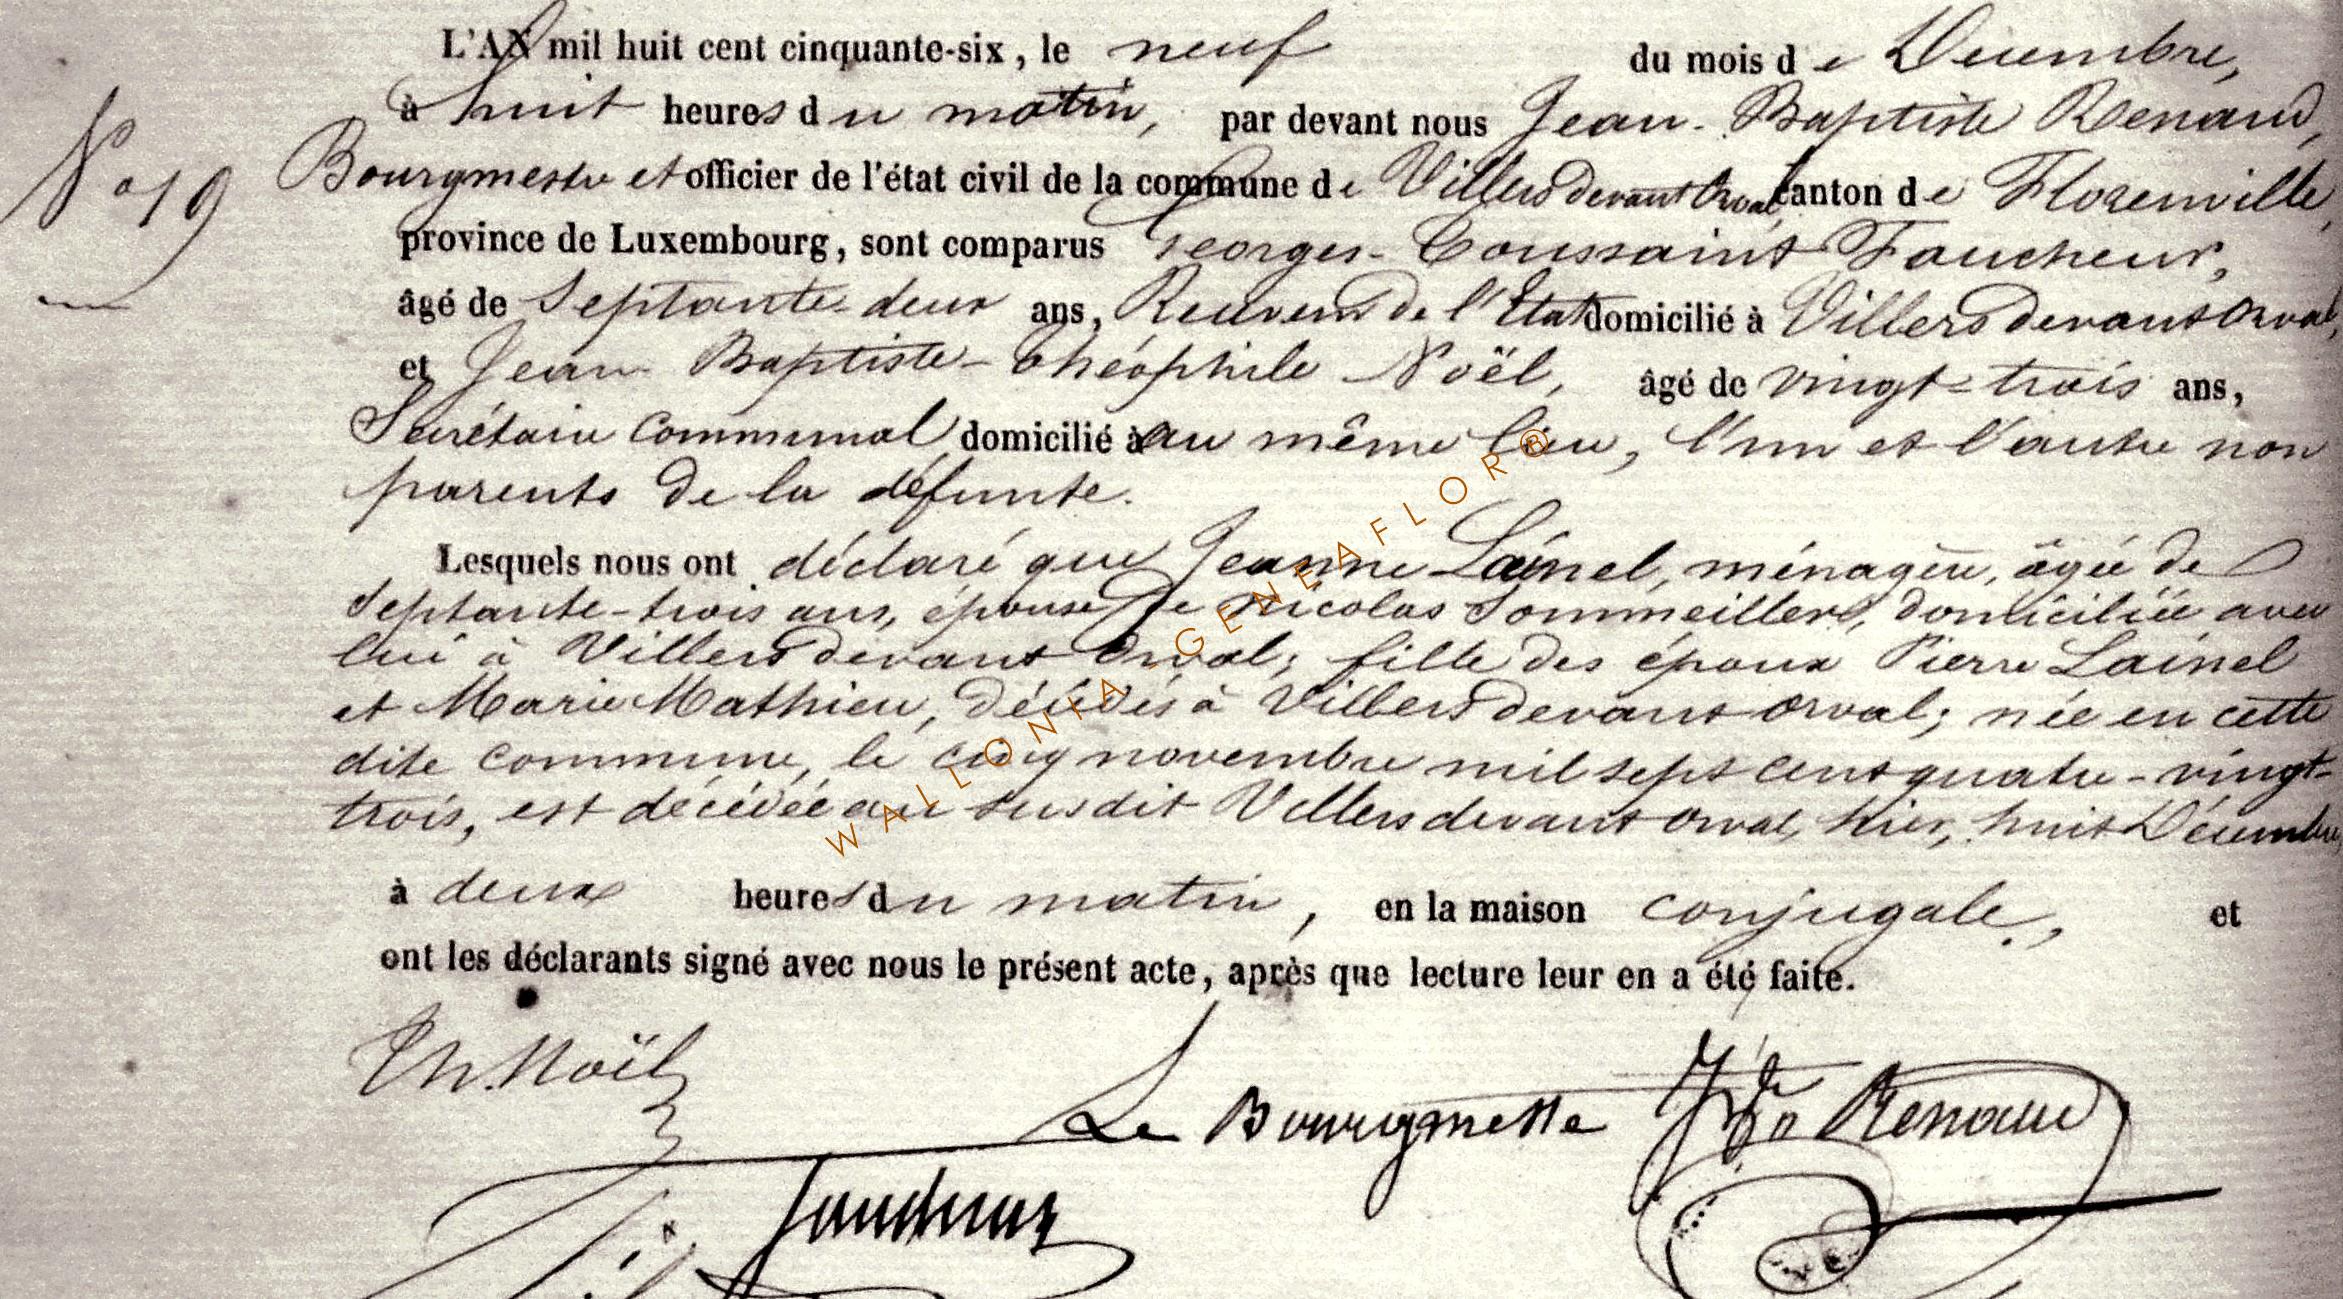 L'AN mil huit cent cinquante-six, le neuf du mois de Décembre,
à huit heures du matin, par devant nous Jean-Baptiste Renaud,
N° 19
Bourgmestre et officier de l'état civil de la commune de Villers devant Orval, canton de Florenville,
province de Luxembourg, sont comparus Georges-Toussaint Faucheur,
âgé de Septante-deux ans, de l'Etat domicilié à Villers devant Orval,
et Jean-Baptiste-Théophile Noël, âgé de vingt-trois ans,
Secrétaire Communal, domicilié à au même lieu, l'un et l'autre non
parents de la défunte.
Lesquels nous ont déclaré que Jeanne Lainel, ménagère, âgée de
Septante-trois ans, épouse de Nicolas Sommeillere, domiciliée avec
lui à Villers devant Orval; fille des époux Pierre Lainel
et Marie Mathieu, décédés à Villers devant Orval; née en cette
dite commune, le cinq novembre mil sept cent quatre-vingt-
trois, est décédée au susdit Villers devant Orval, hier, huit Décembre,
à deux heures du matin, en la maison conjugale, et
ont les déclarants signé avec nous le présent acte, après que lecture leur en a été faite.
Th. Noël
Le Bourgmestre Renaud
Faucheur
WALLONIA-GENEAFLOR®